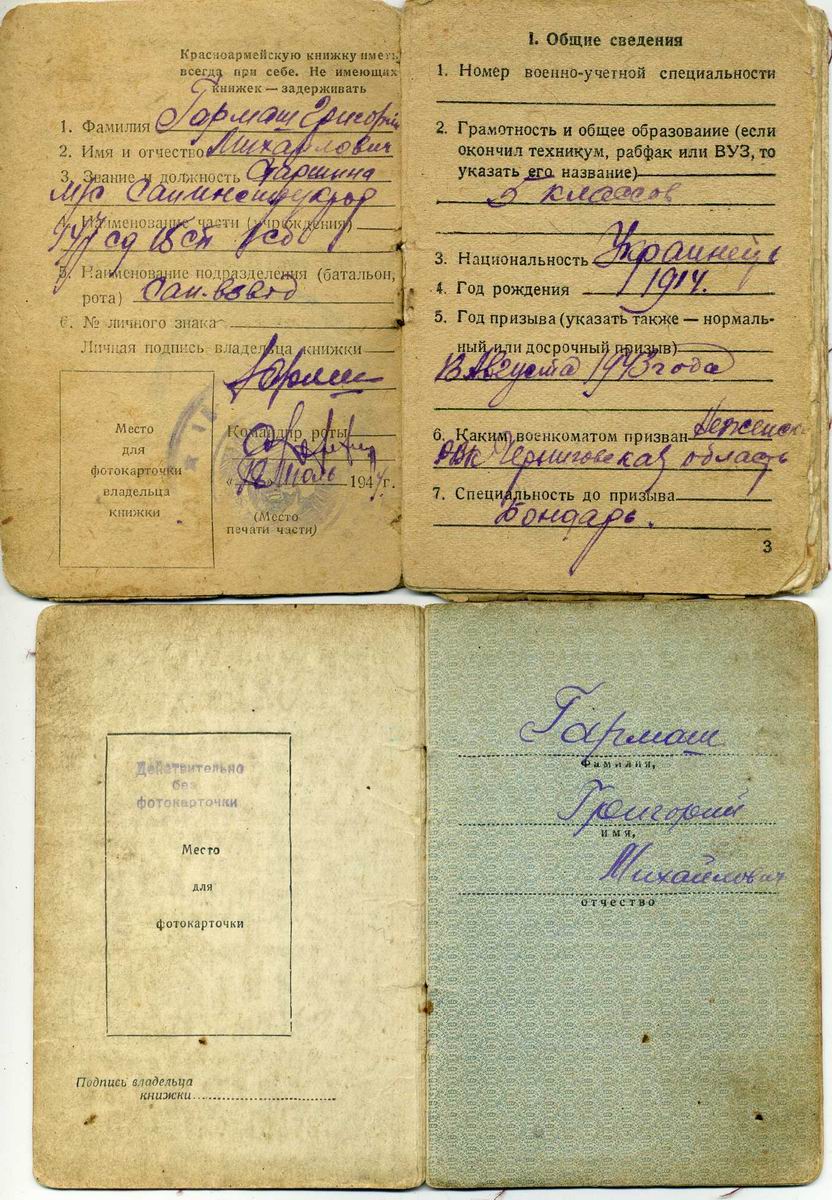 Красноармейскую книжку иметь
всегда при себе. Не имеющих
книжек — задерживать
1. Фамилия Гармаш Григорий
2. Имя и отчество Михайлович
3. Звание и должность Старшина
м/с санинструктор
4. Наименование части (учреждения)
сд
5. Наименование подразделения (батальон,
рота) Сан. взвод
6. № личного знака
Личная подпись владельца книжки
Гармаш
Командир роты
Место
для
фотокарточки
владельца
книжки
Июль 1944 г.
(Место
печати части)
I. Общие сведения
1. Номер военно-учетной специальности
2. Грамотность и общее образование (если
окончил техникум, рабфак или ВУЗ, то
указать его название)
5 классов
3. Национальность Украинец
4. Год рождения 1914.
5. Год призыва (указать также — нормаль-
ный или досрочный призыв)
13 Августа 1943 года
6. Каким военкоматом призван
РВК Черниговская область
7. Специальность до призыва
Бондарь.
3
Действительно
без
фотокарточки
Место
для
фотокарточки
Подпись владельца
книжки
Гармаш
Фамилия,
Григорий
имя,
Михайлович
отчество